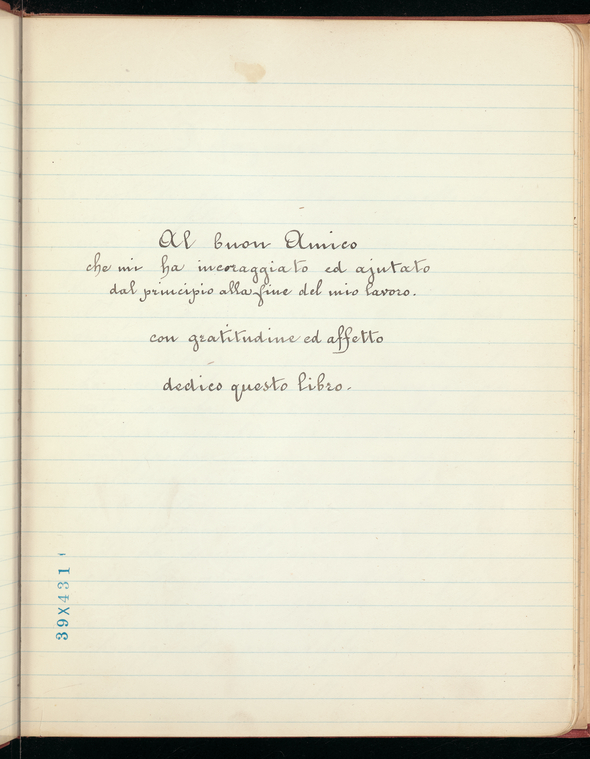 Al buon Amico
che mi ha incoraggiato ed ajutato
dal principio alla fine del mio lavoro.
con gratitudine ed affetto
dedico questo libro.
39X431